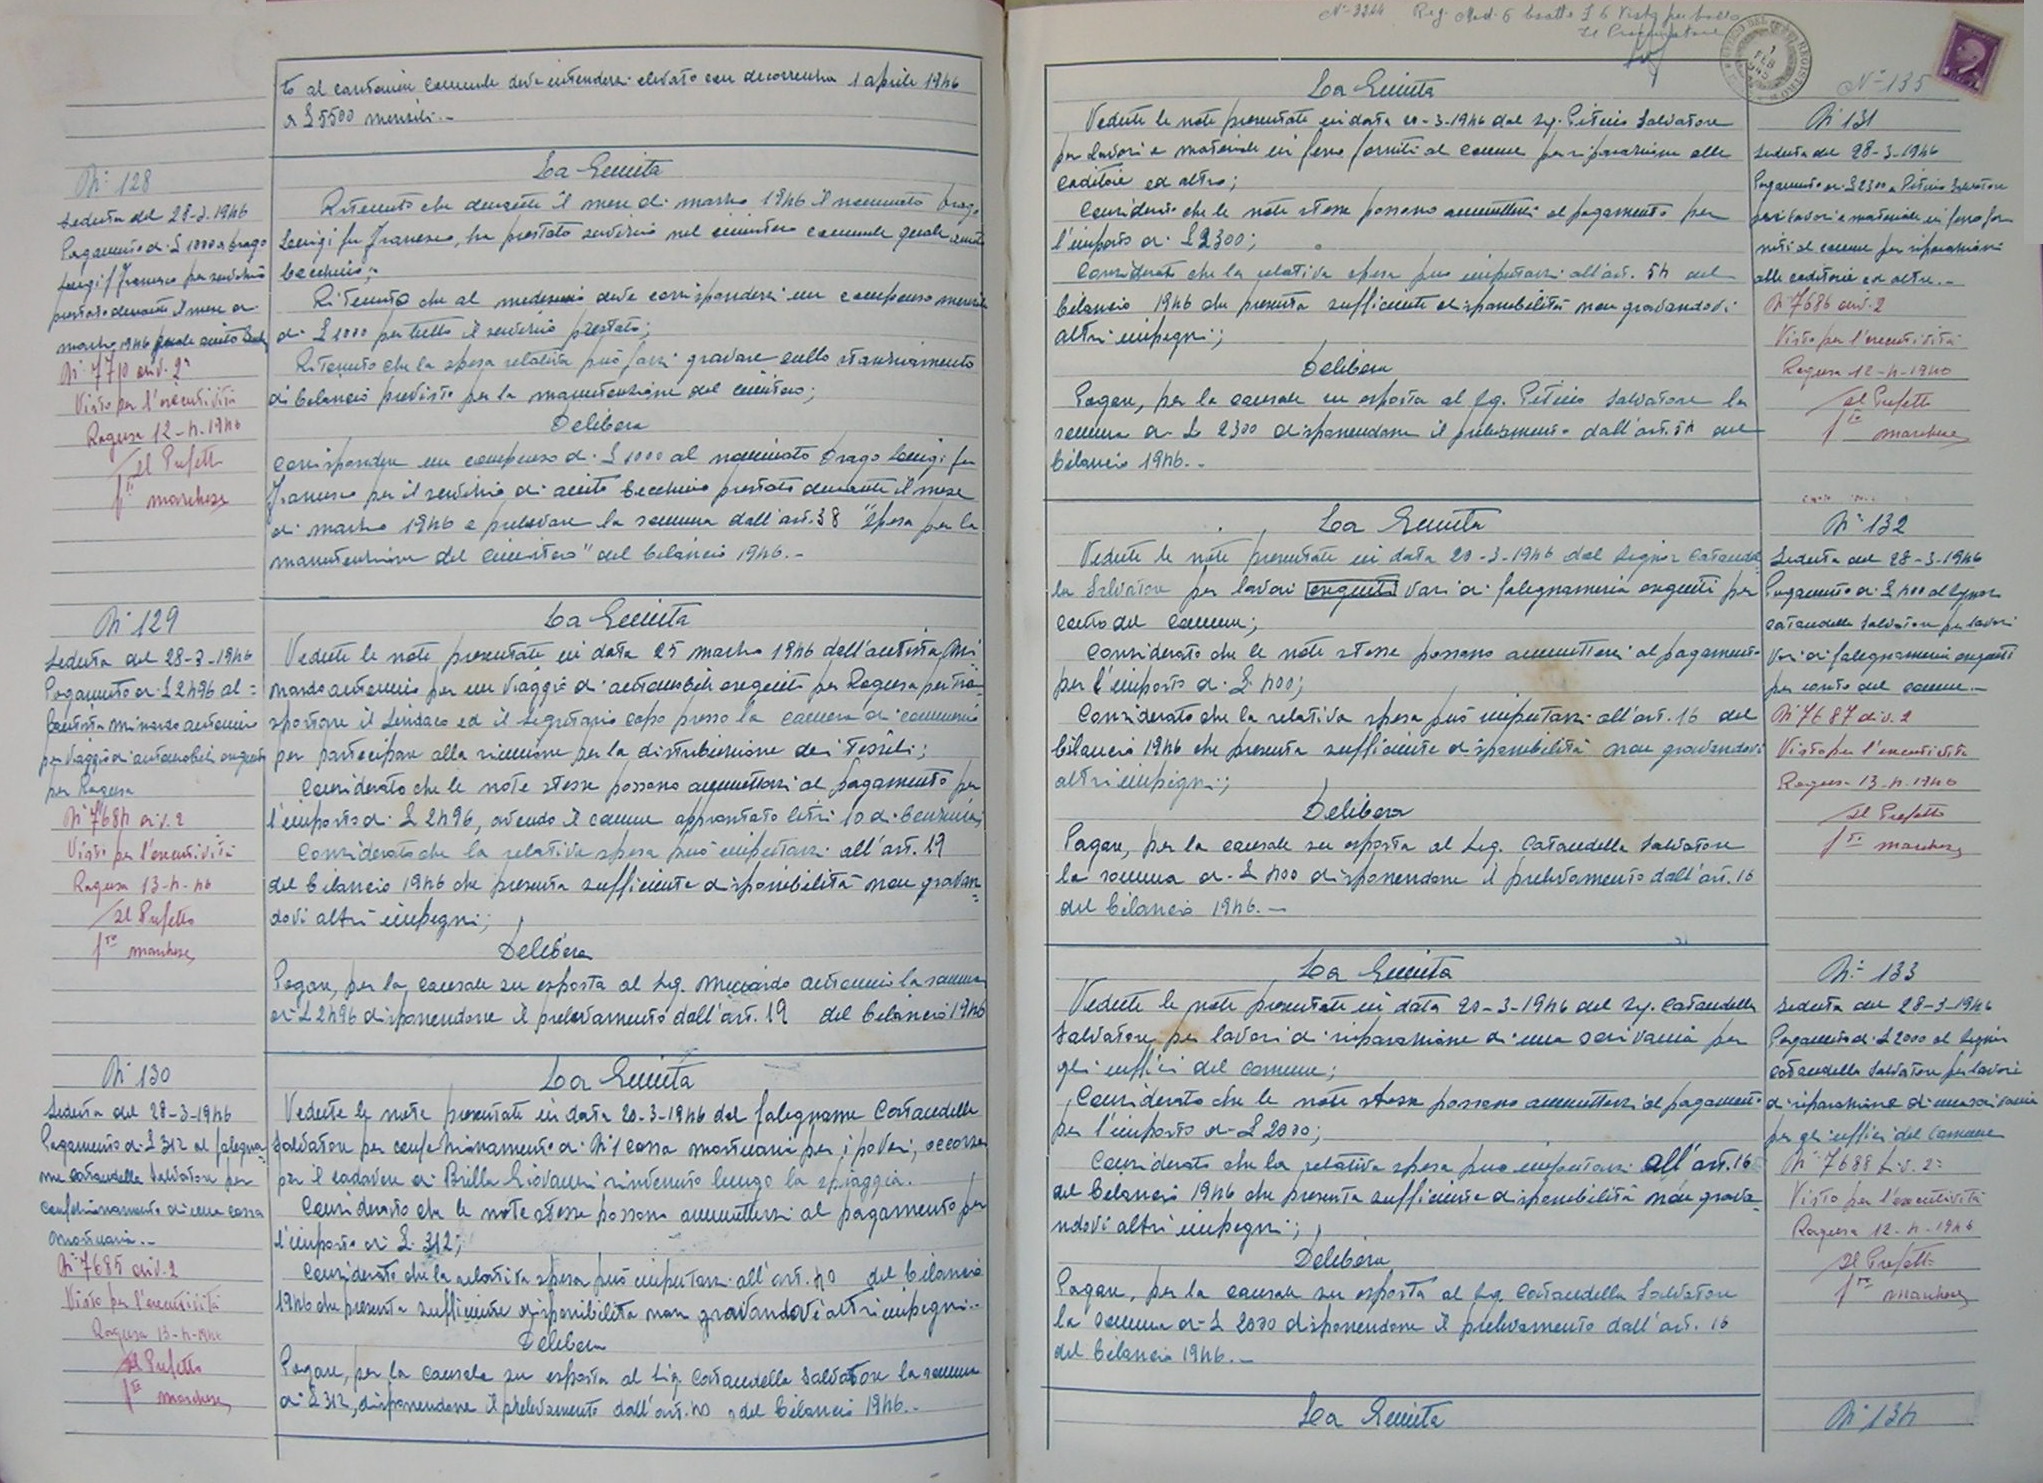 to al cantoniere Comunale deve intendersi elevato con decorrenza 1 aprile 1946
a £ 5500 mensili.-
N° 128
Seduta del 28-3-1946
Pagamento di £ 1000 a Drago
Luigi f Francesco per servizio
prestato durante il mese di
marzo 1946 quale aiuto
N° 7710 div. 2ª
Visto per l'esecutività
Ragusa 12-4-1946
Il Prefetto
f.to marchese
La Giunta
Ritenuto che durante il mese di marzo 1946 il nominato Drago
Luigi fu Francesco, ha prestato servizio nel cimitero comunale quale aiuto
becchino;
Ritenuto che al medesimo deve corrispondersi un compenso mensile
di £ 1000 per tutto il servizio prestato;
Ritenuto che la spesa relativa può farsi gravare sullo stanziamento
di bilancio previsto per la manutenzione del cimitero;
Delibera
Corrispondere un compenso di £ 1000 al nominato Drago Luigi fu
Francesco per il servizio di aiuto becchino prestato durante il mese
di marzo 1946 e prelevare la somma dall'art. 38 "Spesa per la
manutenzione del Cimitero" del bilancio 1946.-
N° 129
Seduta del 28-3-1946
Pagamento di £ 2496 al=
l'autista Minardo Antonio
per viaggio di automobile eseguito
per Ragusa
N° 7684 div. 2
Visto per l'esecutività
Ragusa 13-4-46
Il Prefetto
f.to marchese
La Giunta
Vedute le note presentate in data 25 marzo 1946 dall'autista Mi
nardo Antonio per un viaggio di automobile eseguito per Ragusa per tra-
sportare il Sindaco ed il Segretario capo presso la camera di commercio
per partecipare alla riunione per la distribuzione dei Tessili;
Considerato che le note stesse possono ammettersi al pagamento per
l'importo di £ 2496, avendo il comune approntato litri 10 di benzina;
Considerato che la relativa spesa può imputarsi all'art. 19
del bilancio 1946 che presenta sufficiente disponibilità non gravan=
dovi altri impegni;
Delibera
Pagare, per la causale su esposta al Sig. Minardo Antonio la somma
di £ 2496 disponendone il prelevamento dall'art. 19 del bilancio 1946
N° 130
Seduta del 28-3-1946
Pagamento di £ 312 al falegna-
me Cataudella Salvatore per
confezionamento di una cassa
mortuaria.-
N° 7685 div. 2
Visto per l'esecutività
Ragusa 13-4-1946
Il Prefetto
f.to marchese
La Giunta
Vedute le note presentate in data 20-3-1946 dal falegname Cataudella
Salvatore per confezionamento di N° 1 cassa mortuaria per i poveri, occorsa
per il cadavere di Brilla Giovanni rinvenuto lungo la spiaggia.
Considerato che le note stesse possono ammettersi al pagamento per
l'importo di £ 312;
Considerato che la relativa spesa può imputarsi all'art. 40 del bilancio
1946 che presenta sufficiente disponibilità non gravandovi altri impegni.-
Delibera
Pagare, per la causale su esposta al Sig. Cataudella Salvatore la somma
di £ 312, disponendone il prelevamento dall'art. 40 del bilancio 1946.-
Reg. Mod. 6 Esatte £ 6 Visto per bollo
Il Procuratore
N° 135
La Giunta
Vedute le note presentate in data 20-3-1946 dal Sig. Pitino Salvatore
per lavori e materiale in ferro forniti al comune per riparazione alle
caditoie ed altro;
Considerato che le note stesse possono ammettersi al pagamento per
l'importo di £ 2300;
Considerato che la relativa spesa può imputarsi all'art. 54 del
bilancio 1946 che presenta sufficiente disponibilità non gravandovi
altri impegni;
Delibera
Pagare, per la causale su esposta al Sig. Pitino Salvatore la
somma di £ 2300 disponendone il prelevamento dall'art. 54 del
bilancio 1946.-
N° 131
Seduta del 28-3-1946
Pagamento di £ 2300 a Pitino Salvatore
per lavori e materiale in ferro for
niti al comune per riparazioni
alle caditoie ed altro.-
N° 7686 div. 2
Visto per l'esecutività
Ragusa 12-4-1940
Il Prefetto
f.to marchese
La Giunta
Vedute le note presentate in data 20-3-1946 dal Signor Cataudel
la Salvatore per lavori eseguiti vari di falegnameria eseguiti per
conto del comune;
Considerato che le note stesse possono ammettersi al pagamento
per l'importo di £ 400;
Considerato che la relativa spesa può imputarsi all'art. 16 del
bilancio 1946 che presenta sufficiente disponibilità non gravandovi
altri impegni;
Delibera
Pagare, per la causale su esposta al Sig. Cataudella Salvatore
la somma di £ 400 disponendone il prelevamento dall'art. 16
del bilancio 1946.-
N° 132
Seduta del 28-3-1946
Pagamento di £ 400 al Signor
Cataudella Salvatore per lavori
vari di falegnameria eseguiti
per conto del comune.-
N° 7687 div. 2
Visto per l'esecutività
Ragusa 13-4-1940
Il Prefetto
f.to marchese
La Giunta
Vedute le note presentate in data 20-3-1946 dal Sig. Cataudella
Salvatore per lavori di riparazione di una scrivania per
gli uffici del comune;
Considerato che le note stesse possono ammettersi al pagamento
per l'importo di £ 2000;
Considerato che la relativa spesa può imputarsi all'art. 16
del bilancio 1946 che presenta sufficiente disponibilità non grava-
ndovi altri impegni;
Delibera
Pagare, per la causale su esposta al Sig. Cataudella Salvatore
la somma di £ 2000 disponendone il prelevamento dall'art. 16
del bilancio 1946.-
N° 133
Seduta del 28-3-1946
Pagamento di £ 2000 al Signor
Cataudella Salvatore per lavori
di riparazione di una scrivania
per gli uffici del Comune
N° 7688 div. 2ª
Visto per l'esecutività
Ragusa 12-4-1946
Il Prefetto
f.to marchese
La Giunta
N° 134